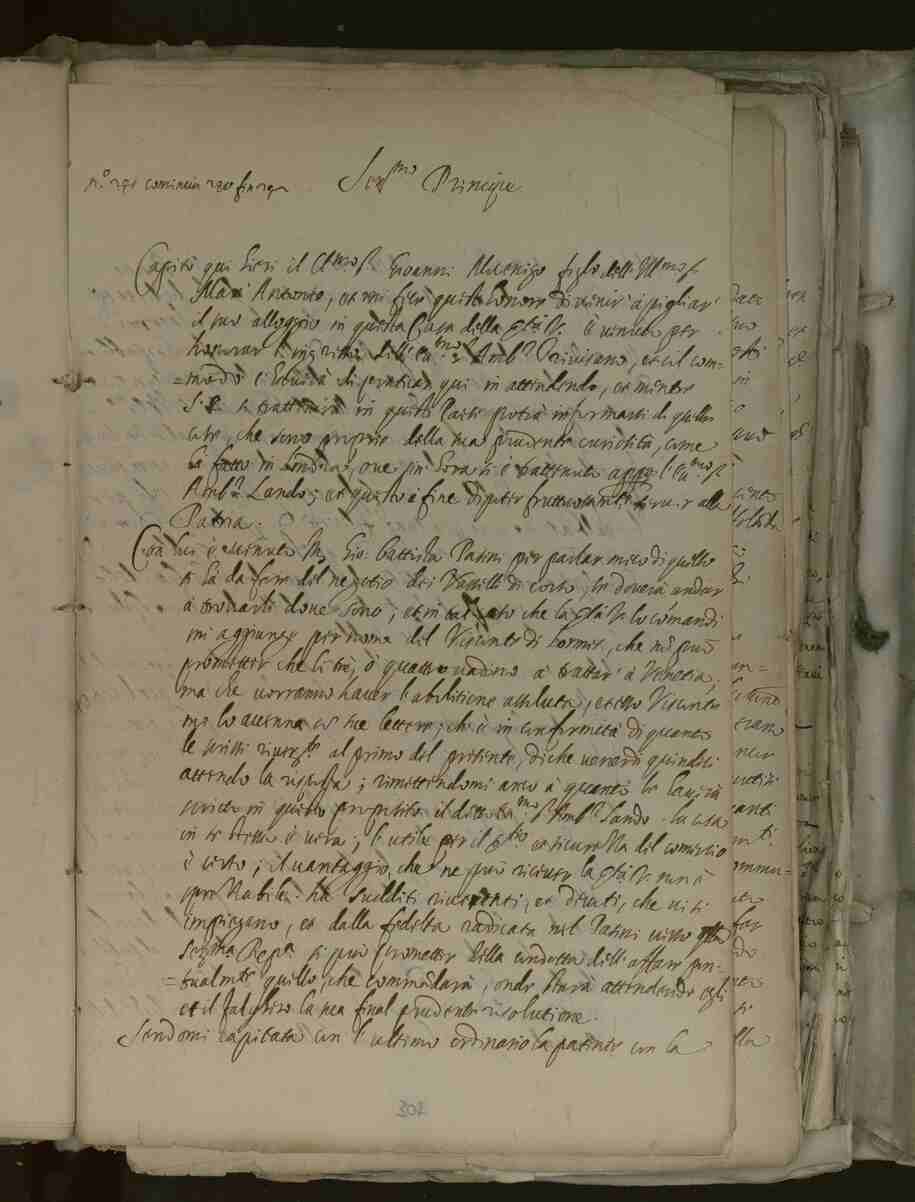 n.o 291 comincia 290 fin 292
Ser.mo Principe
Capitò qui hieri il Cl.mo S.r Giovanni Mocenigo figlio dell' Ill.mo S.r
Marc' Antonio, et mi fece questo honore di venir à pigliar
il suo alloggio in questa Casa della S.tà V. è venuto per
honorar l'ingresso dell' Ecc.mo S.r Amb.r Trivisano, et il com=
=modo
di praticar qui in attendendo, et mentre
S. S. si tratterrà in queste Parti potrà informarsi di quelle
cose, che sono proprie della sua prudente curiosità, come
hà fatto in Londra, ove fin hora si è trattenuto appo l' Ecc.mo S.r
Amb.r Lando; et questo à fine di poter fruttuosamente servir alla
Patria.
Con lui è venuto M. Gio. Battista Pasini per parlar meco di quello
si hà da fare del negotio dei Vasselli di corso, se doverà andar
à trovarli dove sono; et in tal caso che la S.tà V. lo comandi
mi aggiunge per nome del Visconte di Lormes, che non può
prometter che li tre, ò quattro vadino à trattar à Venetia,
ma che vorranno haver l'abilitione assoluta, et esso Visconte
me lo accenna con sue lettere; che è in conformità di quanto
le scrissi river.te al primo del presente, di che venerdì quindeci
attendo la risposta; rimettendomi anco à quanto le haverà
scritto in questo proposito il detto Ecc.mo S.r Amb.r Lando. La cosa
in se stessa è vera; l'utile per il et sicurezza del comertio
è certo; il vantaggio, che ne può ricever la S.tà V. non è
sprezzabile. hà sudditi riverenti, et devoti, che vi si
impiegano, et dalla fedeltà radicata nel Pasini verso questa
Ser.ma Rep.ca si può prometter della condotta dell' affare pon=
=tualm.te quello, che commandarà, onde starà attendendo egli
et il Falghero la sua final prudente risolutione.
Sendomi capitata con l'ultimo ordinario la patente con la
302